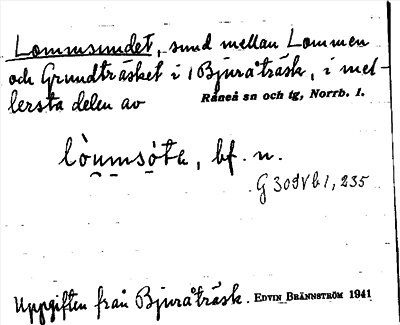 Lommsundet, sund mellan Lommen
och Grundträsket i 1 Bjuråträsk, i mel-
lersta delen av Råneå sn och tg, Norrb. l.
lòṳmsòtɐ, bf. n.
G 309 V b 1, 235
Uppgiften från Bjuråträsk. EDVIN BRÄNNSTRÖM 1941